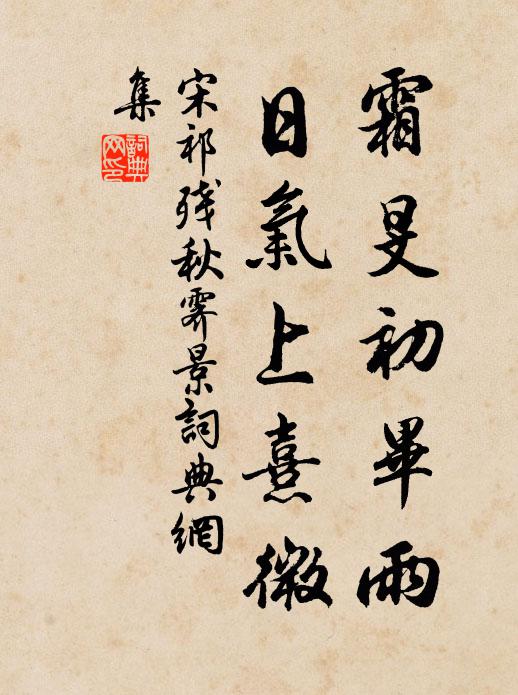 霜旻初畢雨
日氣上熹微
宋祁残秋霽景詞典網
集
詞典
网印